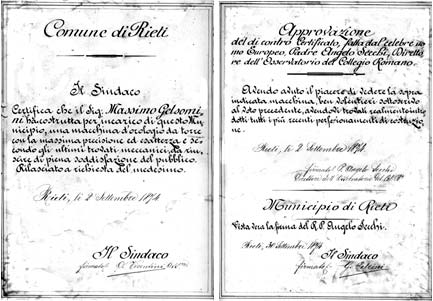 Comune di Rieti
Il Sindaco
Certifica che il Sig. Massimo Gelsomi,
ni ha costrutta per incarico di questo Mu,
nicipio, una macchina d'orologio da torre
con la massima precisione ed esattezza e se,
condo gli ultimi trovati meccanici, da riu,
scire di piena soddisfazione del pubblico.
Rilasciato a richiesta del medesimo.
Rieti, li 2 Settembre 1874
Il Sindaco
firmato
Approvazione
del di contro Certificato, fatta dal celebre uo,
mo Europeo, Padre Angelo Secchi, Diretto,
re dell'Osservatorio del Collegio Romano.
Avendo avuto il piacere di vedere la sopra
indicata macchina, ben volentieri sottoscrivo
al voto precedente, avendovi trovati realmente intro,
dotti tutti i più recenti perfezionamenti di costruzio,
ne.
Rieti, li 2 Settembre 1874
firmato P. Angelo Secchi
Direttore dell'Osservatorio del
Municipio di Rieti
Vista vera la firma del R. P. Angelo Secchi.
Rieti, Settembre 1874
Il Sindaco
firmato